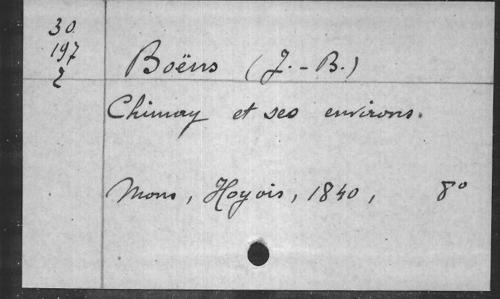 30
197
2
Boëns (J.-B.)
Chimay et ses environs.
Mons, Hoyois, 1840, 8º